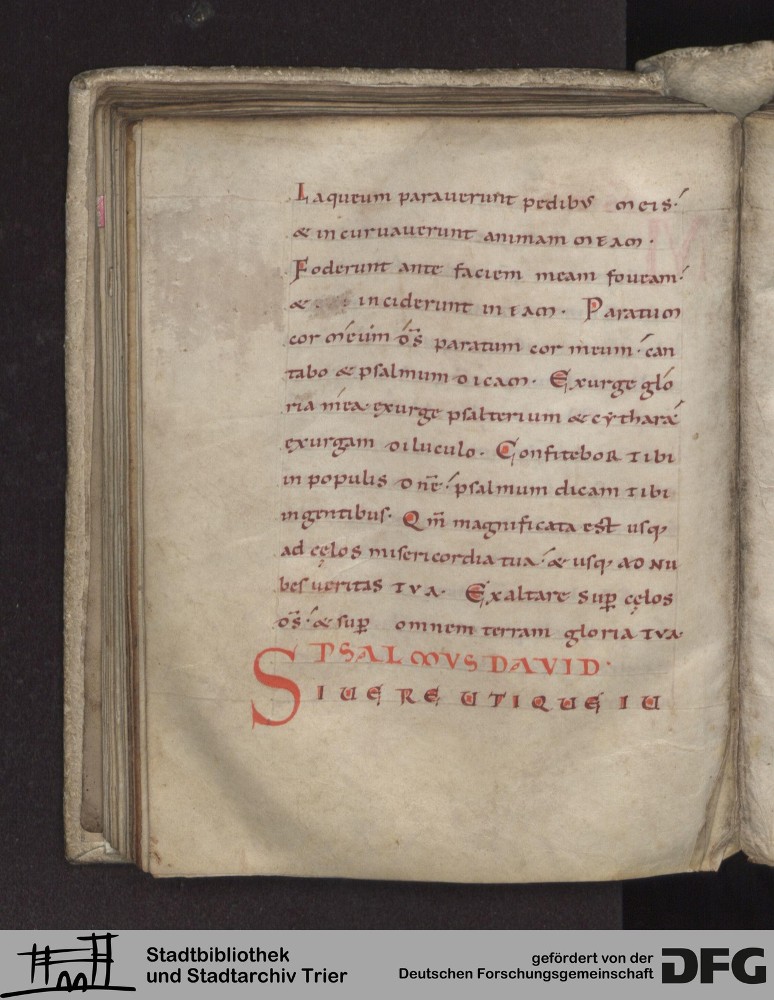 Laqueum parauerunt pedibus meis·
& incuruauerunt animam meam·
Foderunt ante faciem meam foueam·
& inciderunt in eam· Paratum
cor meum d̄s paratum cor meum· can
tabo & psalmum dicam· Exurge glo
ria mea exurge psalterium & cythara
exurgam diluculo· Confitebor tibi
in populis dn̄e· psalmum dicam tibi
in gentibus· Qm̄ magnificata est usq;
ad cęlos misericordia tua· & usq; ad nu
bes ueritas tua· Exaltare sup̄ cęlos
d̄s· & sup̄ omnem terram gloria tua·
PSALMVS DAVID·
SI UERE UTIQUE IU
Stadtbibliothek
und Stadtarchiv Trier
gefördert von der
Deutschen Forschungsgemeinschaft
DFG